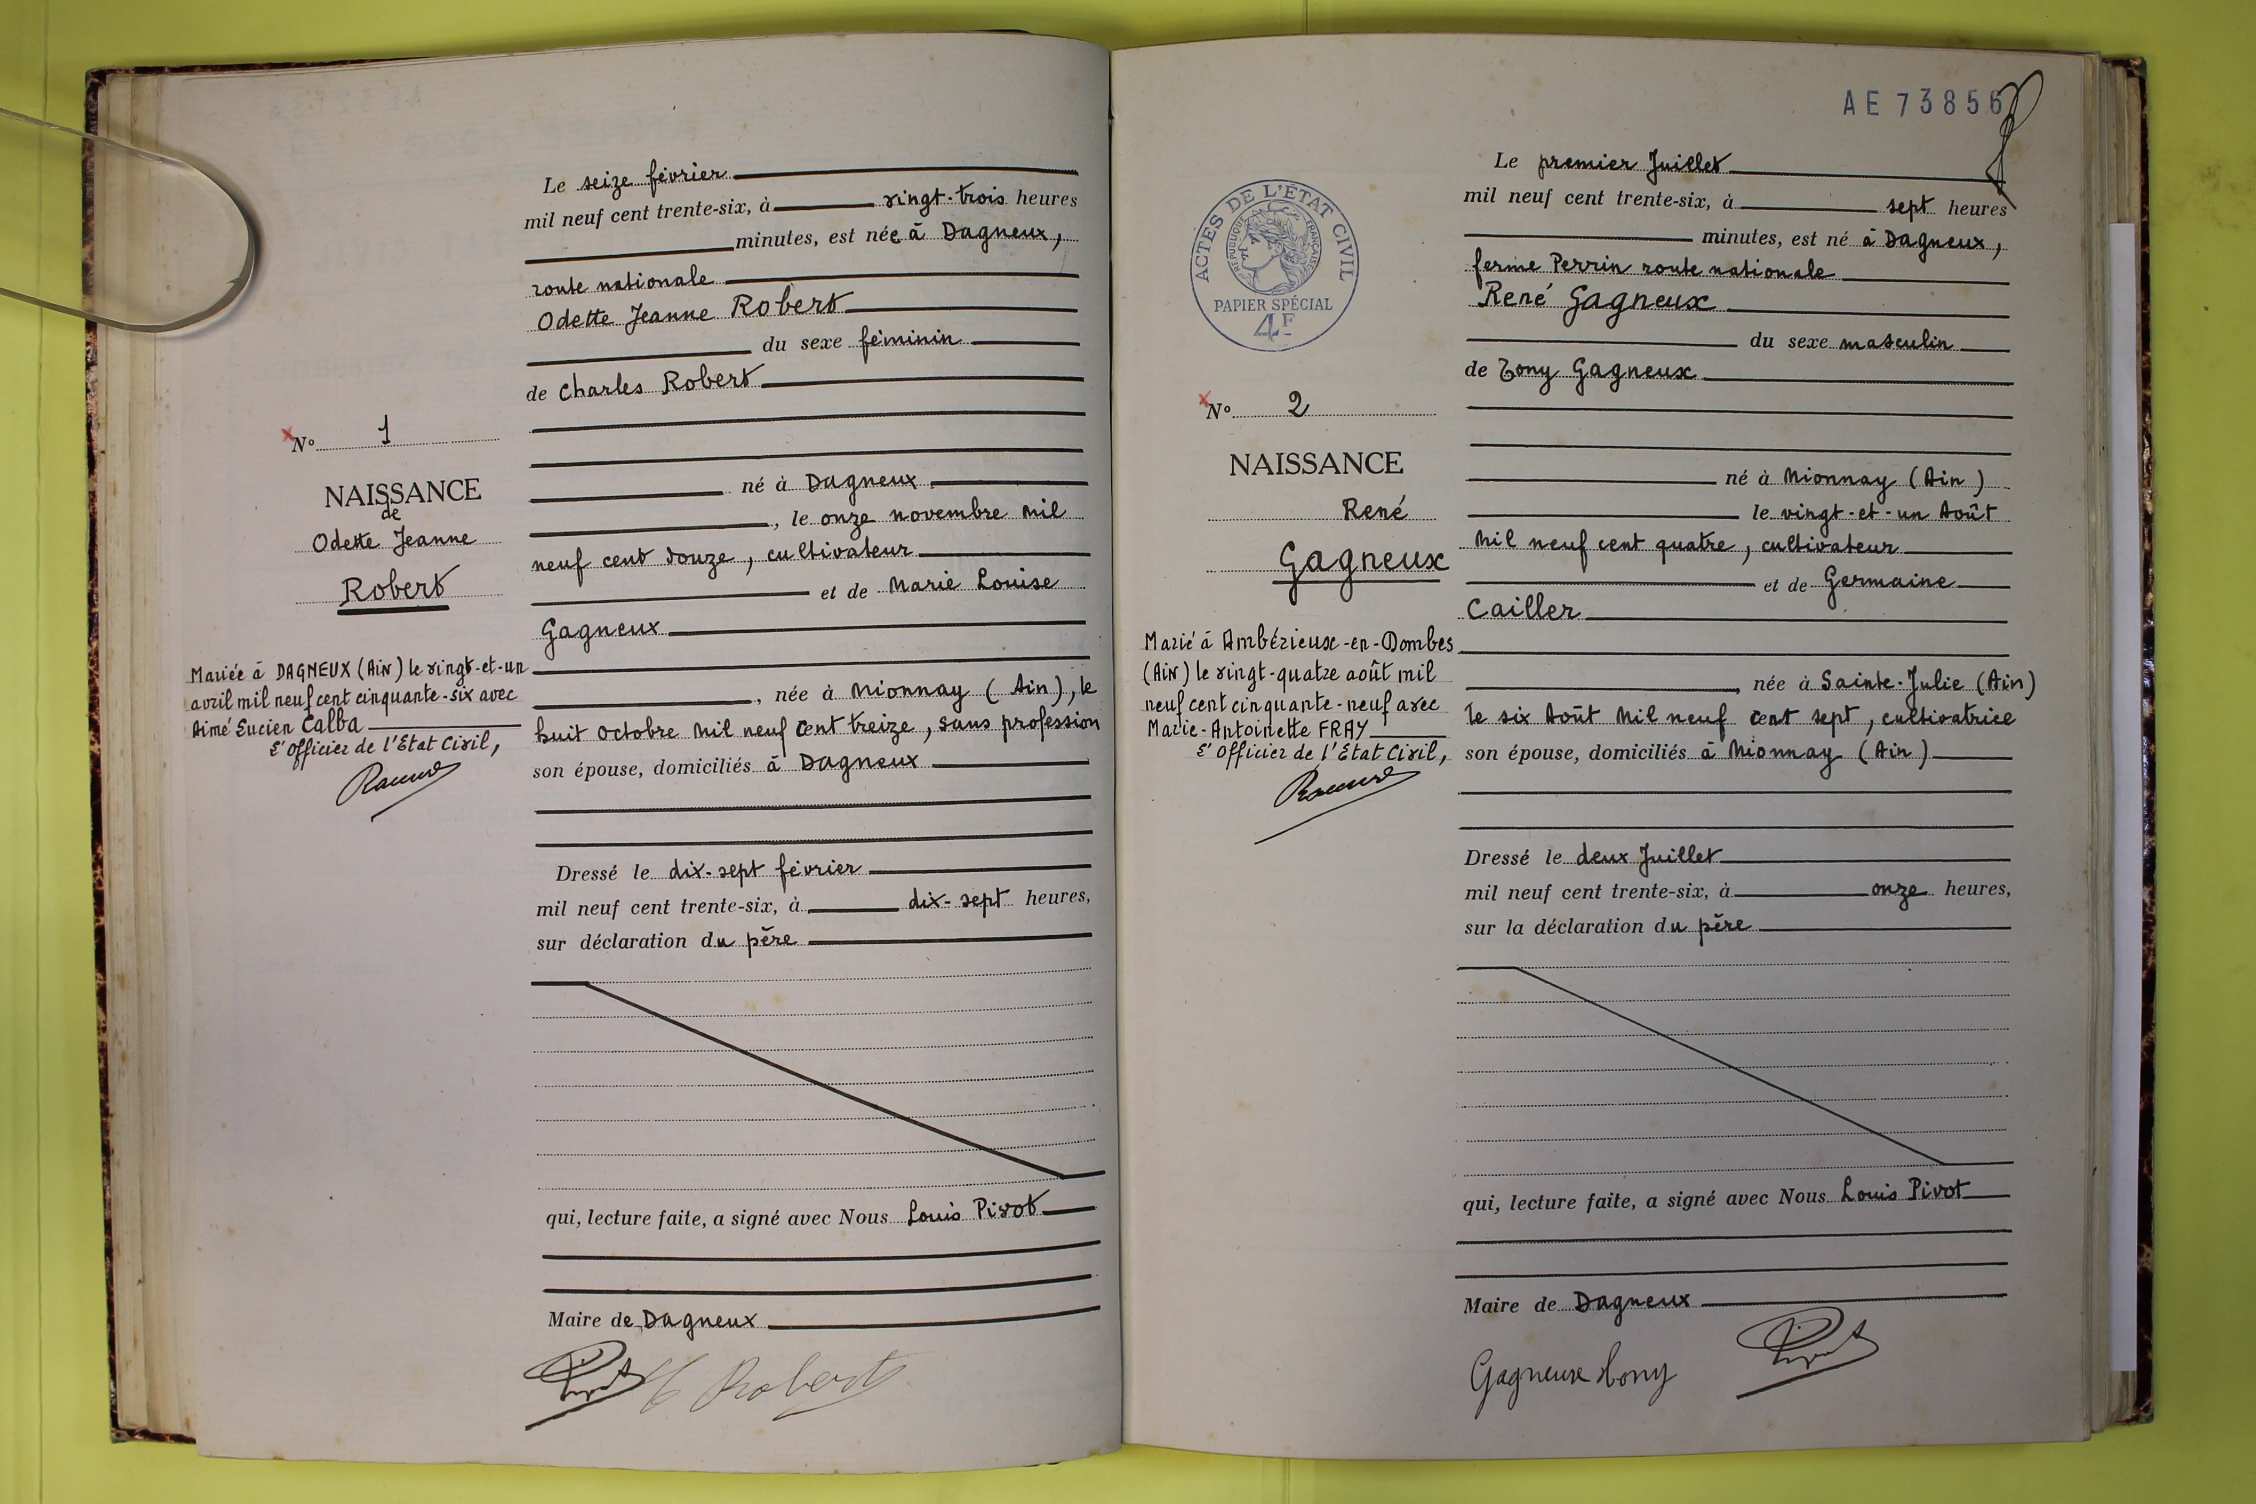 Le seize février
mil neuf cent trente-six, à vingt-trois heures
minutes, est née à Dagneux,
route nationale
Odette Jeanne Robert
du sexe féminin
de Charles Robert
né à Dagneux
, le onze novembre mil
neuf cent douze, cultivateur
et de Marie Louise
Gagneux
, née à Mionnay (Ain), le
huit octobre mil neuf cent treize, sans profession
son épouse, domiciliés à Dagneux
Dressé le dix-sept février
mil neuf cent trente-six, à dix-sept heures,
sur déclaration du père
qui, lecture faite, a signé avec Nous Louis Pivot
Maire de Dagneux
Pivot C Robert
N° 1
NAISSANCE
de
Odette Jeanne
Robert
Mariée à DAGNEUX (Ain) le vingt-et-un
avril mil neuf cent cinquante-six avec
Aimé Lucien Calba
L'Officier de l'Etat Civil,
AE 73856
ACTES DE L'ETAT CIVIL
REPUBLIQUE FRANÇAISE
PAPIER SPÉCIAL
4F
N° 2
NAISSANCE
René
Gagneux
Marié à Ambérieux-en-Dombes
(Ain) le vingt-quatre août mil
neuf cent cinquante-neuf avec
Marie-Antoinette FRAY
L'Officier de l'Etat Civil,
Le premier Juillet
mil neuf cent trente-six, à sept heures
minutes, est né à Dagneux,
ferme Perrin route nationale
René Gagneux
du sexe masculin
de Tony Gagneux
né à Mionnay (Ain)
le vingt-et-un Août
mil neuf cent quatre, cultivateur
et de Germaine
Cailler
, née à Sainte-Julie (Ain)
le six Août mil neuf cent sept, cultivatrice
son épouse, domiciliés à Mionnay (Ain)
Dressé le deux Juillet
mil neuf cent trente-six, à onze heures,
sur la déclaration du père
qui, lecture faite, a signé avec Nous Louis Pivot
Maire de Dagneux
Gagneux Tony Pivot